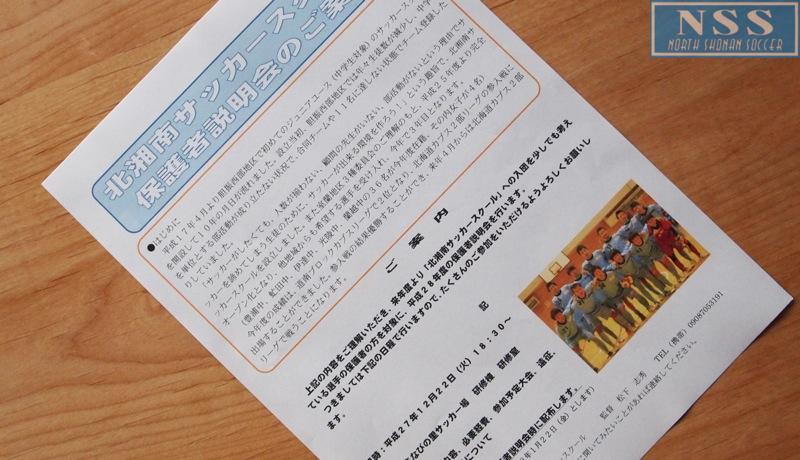 NSS
NORTH SHONAN SOCCER
北湘南サッカースク
保護者説明会のご案
●はじめに
平成17年4月より胆振西部地区で初めてのジュニアユース（中学生対象）のサッカースク
を開設して10年の月日が流れました。設立当初、胆振西部地区では年々生徒数が減少し、中学
を単位とする部活動が成り立たない状況で、合同チームや11名に達しない状態でチーム登録した
りしていました。
「サッカーがしたくても、人数が揃わない、顧問の先生がいない、部活動がないという理由でサ
ッカーを諦めてしまう生徒のために、サッカーが出来る環境を作ろう！」という趣旨で、北湘南サ
ッカースクールを設立しました。また室蘭地区の
オープン化となり、他地域からも希望する選手を受け入れ、今年で3年目となります。
（豊浦中、虻田中、伊達中、光陵中、蘭越中の36名が今年度在籍、その内女子が4名）
今年度の成績は、道南ブロックカブスリーグで2位となり、北海道カブス2部リーグの参入戦に
出場することができました。参入戦の結果優勝することができ、来年4月からは北海道カブス2部
リーグで戦うことになります。
ご　案　内
上記の内容をご理解いただき、来年度より「北湘南サッカースクール」への入団を少しでも考え
ている選手の保護者の方を対象に、平成28年度の保護者説明会を行います。
つきましては下記の日程で行いますので、たくさんのご参加をいただけるようよろしくお願いし
ます。
記
時：平成27年12月22日（火）18：30～
なびの里サッカー場　研修棟　研修室
内容、必要経費、参加予定大会、遠征、
について
者説明会時に配布します。
年1月22日（金）とします）
スクール　監督　松下　志秀　TEL（携帯）09087053191
に聞いてみたいことがあれば連絡してください。